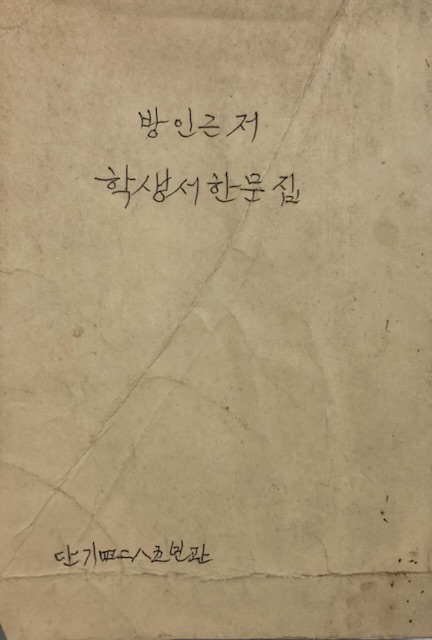 방인근 저
학생서한문집
단기四二八초번판